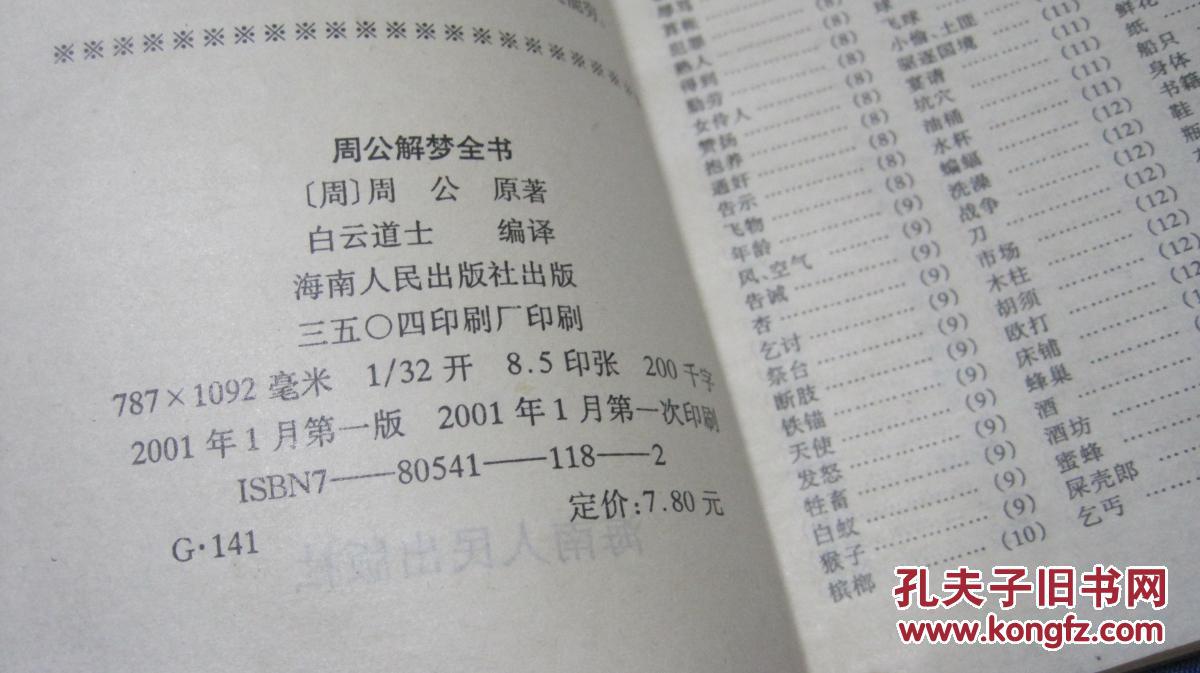 ※※※※※※※※※※※※※※※※※※※※
周公解梦全书
〔周〕周 公 原著
白云道士 编译
海南人民出版社出版
三五〇四印刷厂印刷
787×1092 毫米 1/32 开 8.5 印张 200 千字
2001 年 1 月第一版 2001 年 1 月第一次印刷
ISBN7——80541——118——2
定价:7.80 元
G·141
海南人民出版社
熟人 (8)
得到 (8)
勤劳 (8)
女伶人 (8)
赞扬 (8)
抱养 (8)
通奸 (8)
告示 (8)
飞物 (9)
年龄 (9)
风、空气 (9)
告诫 (9)
杏 (9)
乞讨 (9)
祭台 (9)
断肢 (9)
铁锚 (9)
天使 (9)
发怒 (9)
牲畜 (9)
白蚁 (9)
猴子 (9)
槟榔 (10)
球
飞球 (11)
小偷、土匪 (11)
驱逐国境 (11)
宴请 (11)
坑穴 (11)
油桶 (11)
水杯 (12)
蝙蝠 (12)
洗澡 (12)
战争 (12)
刀 (12)
市场 (12)
木柱 (12)
胡须
欧打
床铺
蜂巢
酒
酒坊
蜜蜂
屎壳郎
乞丐
鲜花
纸
船只
身体
书籍
鞋
瓶
孔夫子旧书网
www.kongfz.com